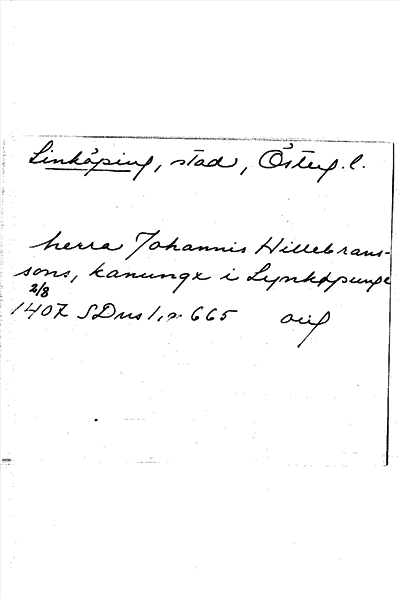 Linköping, stad, Österg. l.
herra Johannis Hillebrans-
sons, kanungx i Lynkøpunge
2/8
1407 SDns 1, s. 665 orig